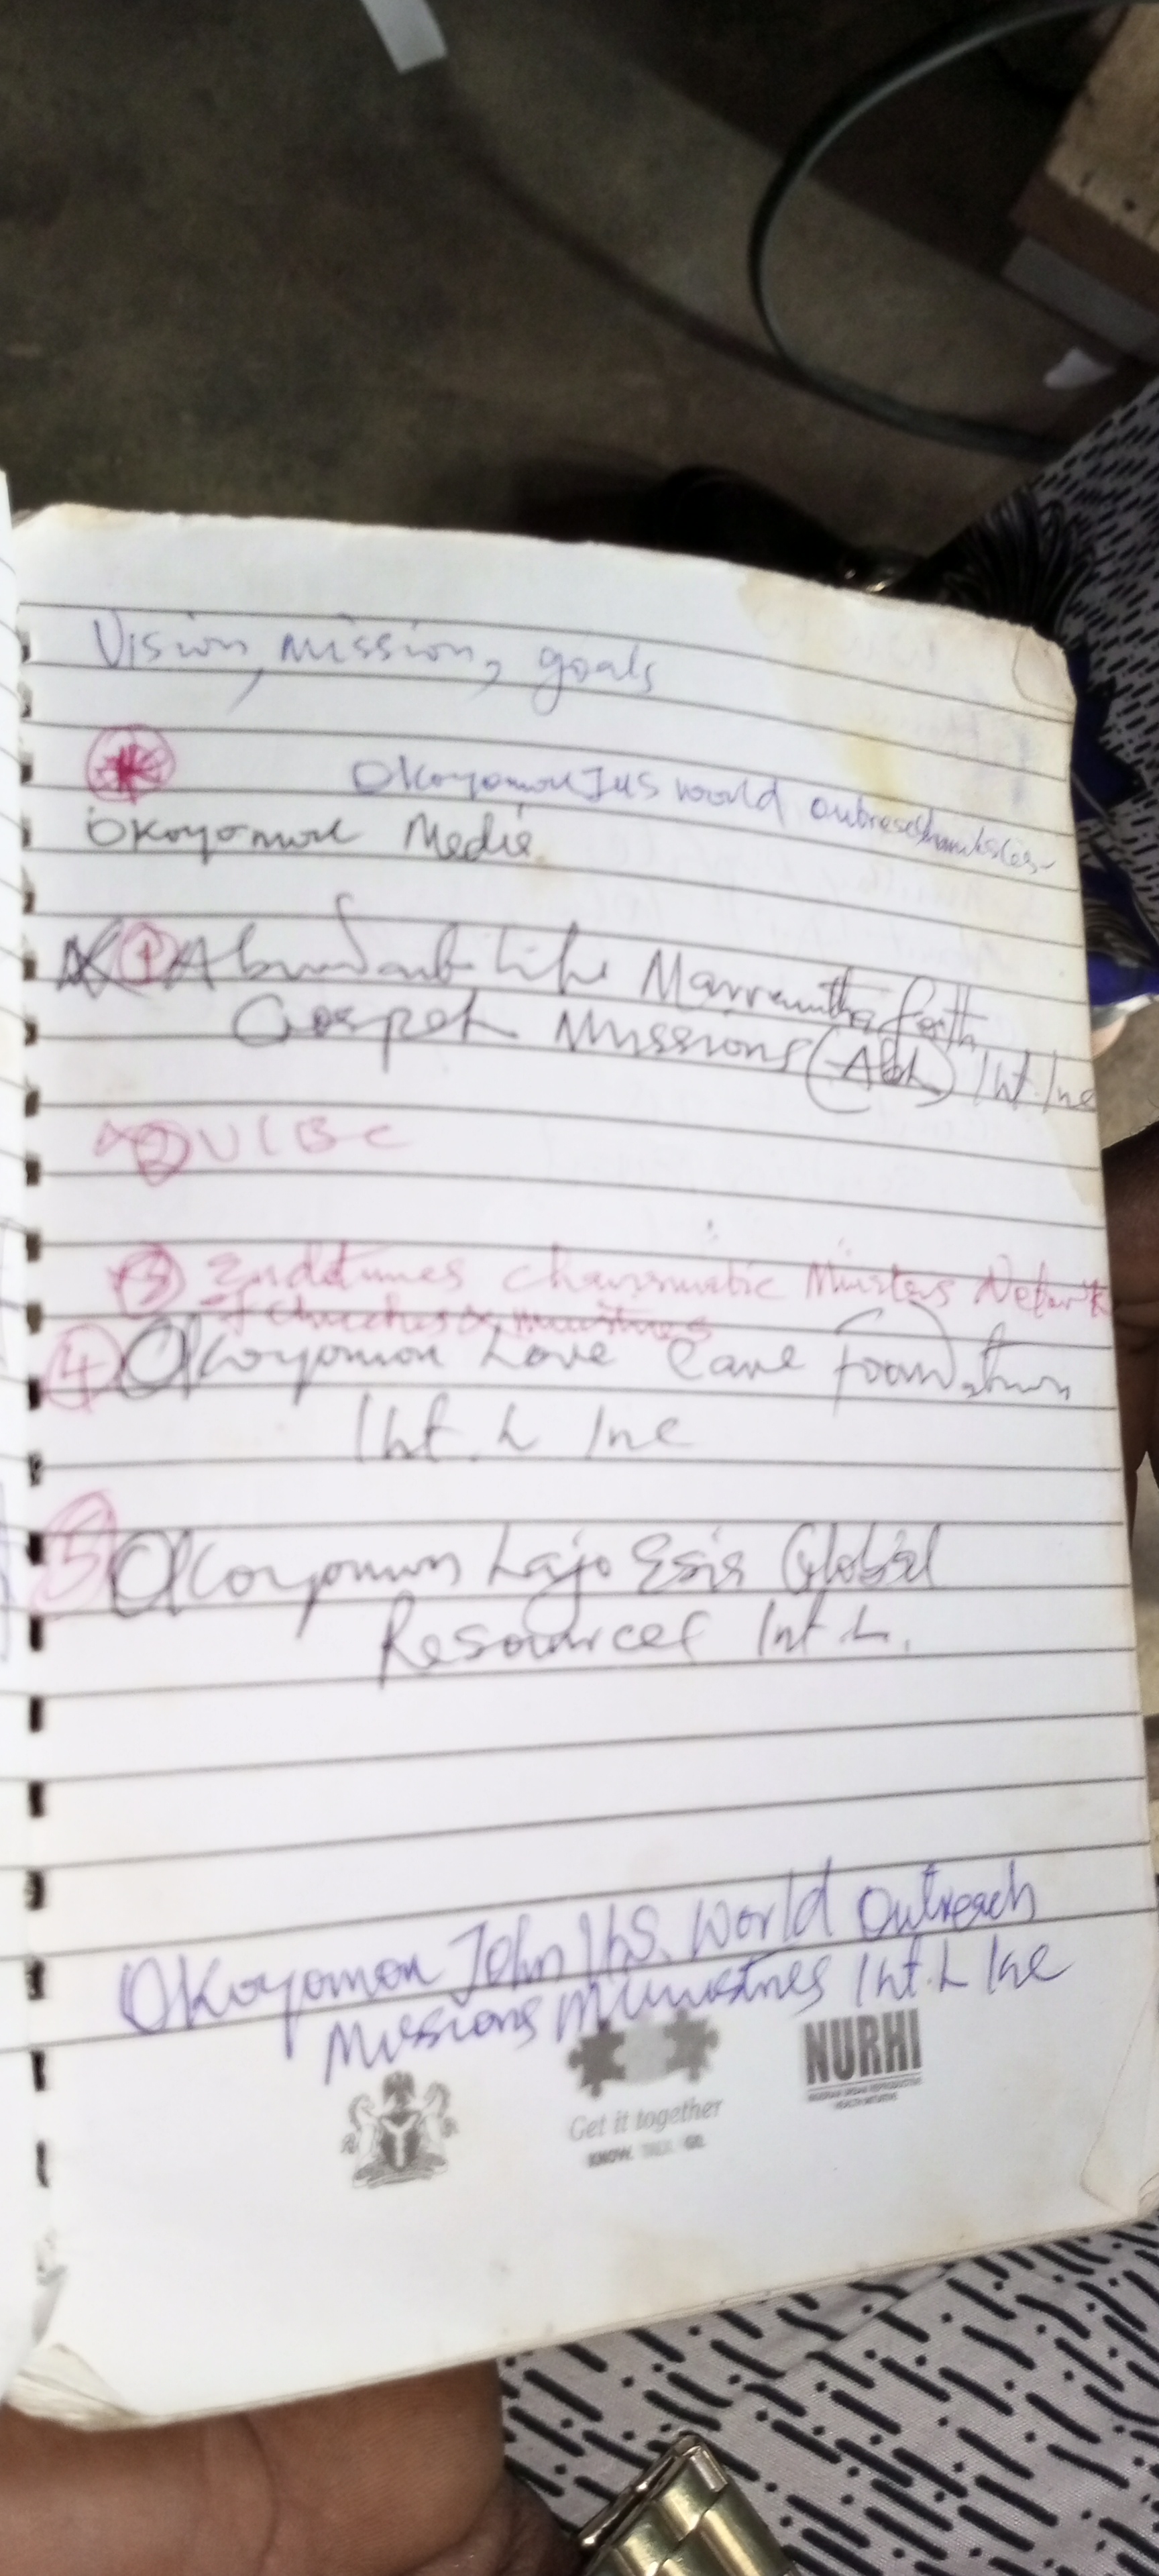 Vision, mission, goals
Okoyomon JHS world
Okoyomon Media
① Abundant Life Marranatha faith
Gospel Missions (ALM) Int. Inc
② VIBC
③ Endtimes charismatic Network
of churches & ministries
④ Okoyomon Love Care Foundation
Int. L Inc
5 Okoyomon Lajo Esis Global
Resources Int. L.
Okoyomon John IHS. World Outreach
Missions Ministries Int. L Inc
Get it together
KNOW. TALK. GO.
NURHI